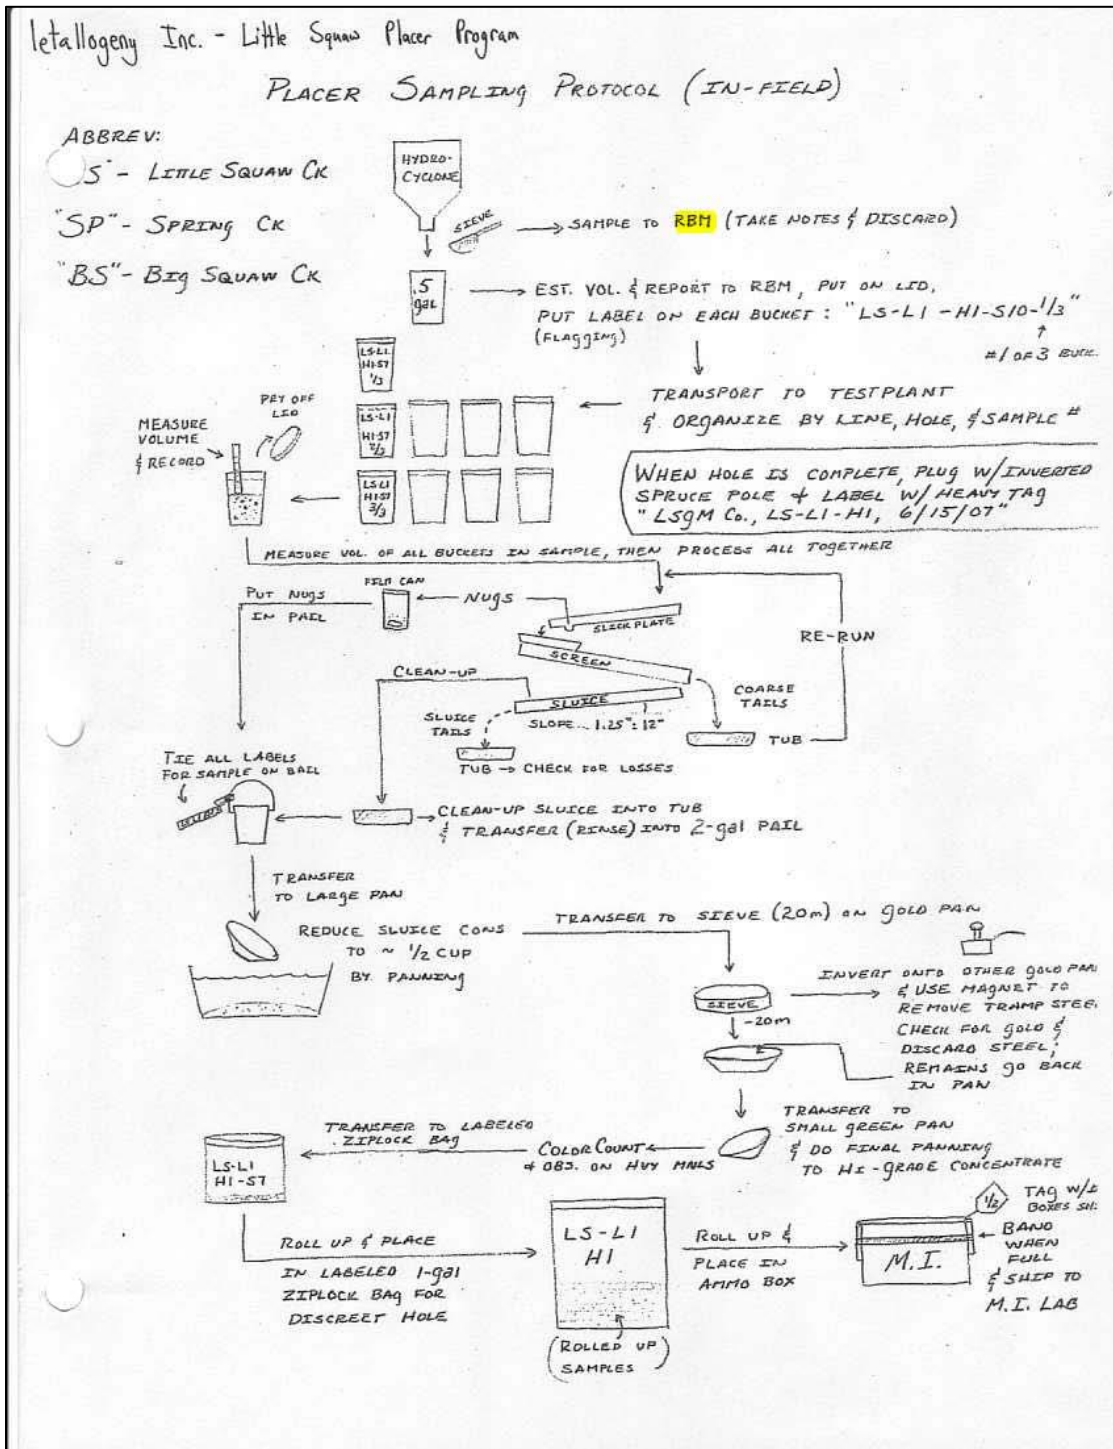 letallogeny Inc. - Little Squaw Placer Program
PLACER SAMPLING PROTOCOL (IN-FIELD)
ABBREV:
S" - LITTLE SQUAW CK
"SP" - SPRING CK
"BS" - BIG SQUAW CK
HYDRO-
CYCLONE
SIEVE
SAMPLE TO RBM (TAKE NOTES & DISCARD)
.5
gal
EST. VOL. & REPORT TO RBM, PUT ON LID,
PUT LABEL ON EACH BUCKET: "LS-L1-H1-S10-1/3"
(FLAGGING)
#1 OF 3 BUCK.
LS-L1
H1-S7
1/3
TRANSPORT TO TESTPLANT
& ORGANIZE BY LINE, HOLE, & SAMPLE #
PRY OFF
LID
MEASURE
VOLUME
& RECORD
LS-L1
H1-S7
2/3
LS-L1
H1-S7
3/3
WHEN HOLE IS COMPLETE, PLUG W/INVERTED
SPRUCE POLE & LABEL W/HEAVY TAG
"LSGM Co., LS-L1-H1, 6/15/07"
MEASURE VOL. OF ALL BUCKETS IN SAMPLE, THEN PROCESS ALL TOGETHER
PUT NUGS
IN PAIL
FILM CAN
NUGS
SLICK PLATE
SCREEN
RE-RUN
CLEAN-UP
SLUICE
SLUICE
TAILS
SLOPE 1.25":12"
COARSE
TAILS
TUB
TUB → CHECK FOR LOSSES
TIE ALL LABELS
FOR SAMPLE ON BAIL
CLEAN-UP SLUICE INTO TUB
& TRANSFER (RINSE) INTO 2-gal PAIL
TRANSFER
TO LARGE PAN
REDUCE SLUICE CONS
TO ~ 1/2 CUP
BY PANNING
TRANSFER TO SIEVE (20m) ON GOLD PAN
SIEVE
-20m
INVERT ONTO OTHER GOLD PAN
& USE MAGNET TO
REMOVE TRAMP STEEL
CHECK FOR GOLD &
DISCARD STEEL;
REMAINS GO BACK
IN PAN
TRANSFER TO
SMALL GREEN PAN
& DO FINAL PANNING
TO HI-GRADE CONCENTRATE
COLOR COUNT
& OBS. ON HVY MNLS
TRANSFER TO LABELED
ZIPLOCK BAG
LS-L1
H1-S7
ROLL UP & PLACE
IN LABELED 1-gal
ZIPLOCK BAG FOR
DISCREET HOLE
LS-L1
H1
(ROLLED UP
SAMPLES)
ROLL UP &
PLACE IN
AMMO BOX
M.I.
1/2
TAG W/
BOXES
BAND
WHEN
FULL
& SHIP TO
M.I. LAB